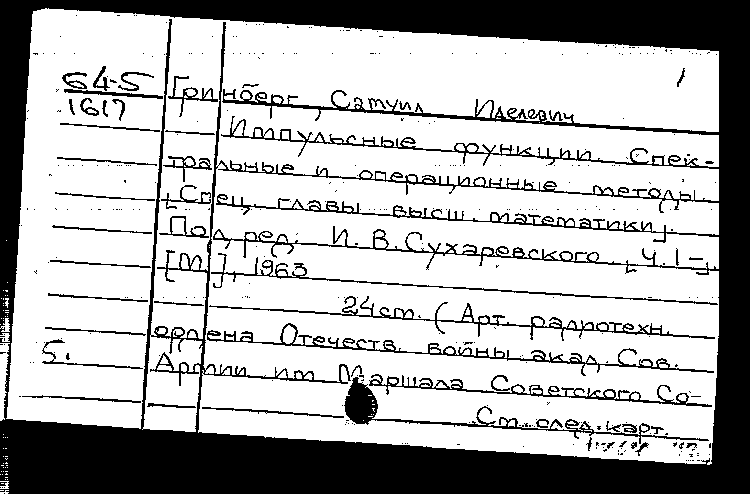 1
64-5 Гринберг, Самуил Иделевич
1617
Импульсные функции. Спек-
тральные и операционные методы.
[Спец. главы высш. математики].
Под ред. И. В. Сухаревского. [Ч. I-].
[М.], 1963
24 см. (Арт. радиотехн.
ордена Отечеств. войны акад. Сов.
5. Армии им. Маршала Советского Со-
См. след. карт.